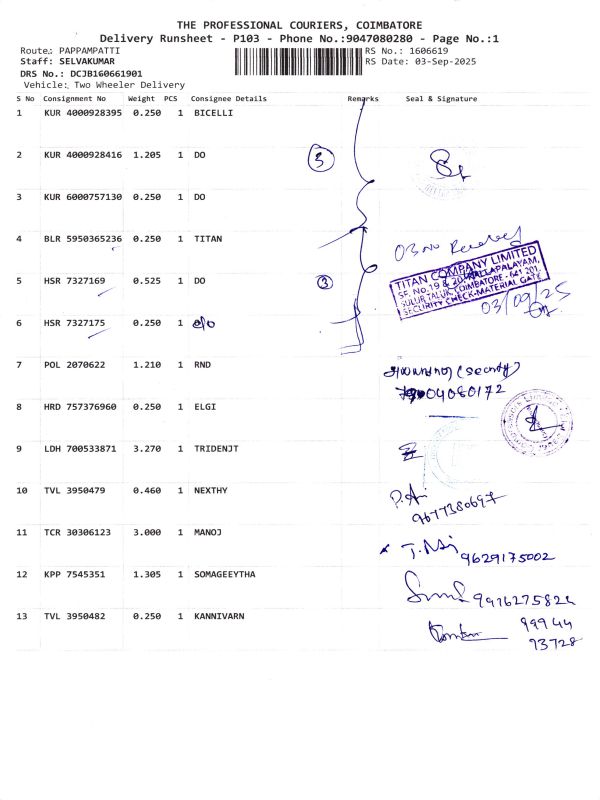 THE PROFESSIONAL COURIERS, COIMBATORE
Delivery Runsheet - P103 - Phone No.:9047080280 - Page No.:1
Route: PAPPAMPATTI RS No.: 1606619
Staff: SELVAKUMAR RS Date: 03-Sep-2025
DRS No.: DCJB160661901
Vehicle: Two Wheeler Delivery
S No Consignment No Weight PCS Consignee Details Remarks Seal & Signature
1 KUR 4000928395 0.250 1 BICELLI
2 KUR 4000928416 1.205 1 DO 3
3 KUR 6000757130 0.250 1 DO
4 BLR 5950365236 0.250 1 TITAN
03 No Received
TITAN COMPANY LIMITED
SF. NO.19 & 20, NALLAPALAYAM,
SULUR TALUK, COIMBATORE - 641 201.
SECURITY CHECK-MATERIAL GATE
5 HSR 7327169 0.525 1 DO 3
03/09/25
6 HSR 7327175 0.250 1 c/o
7 POL 2070622 1.210 1 RND
(security)
04080172
8 HRD 757376960 0.250 1 ELGI
9 LDH 700533871 3.270 1 TRIDENJT
10 TVL 3950479 0.460 1 NEXTHY
9677380697
11 TCR 30306123 3.000 1 MANOJ
9629175002
12 KPP 7545351 1.305 1 SOMAGEEYTHA
13 TVL 3950482 0.250 1 KANNIVARN
99944
93728